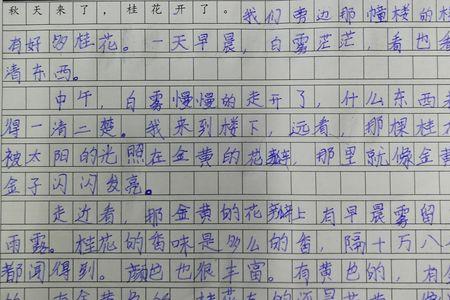 秋天来了，桂花开了。我们旁边那幢楼的桂
有好多桂花。一天早晨，白雾茫茫，看也看
清东西。
中午，白雾慢慢的走开了，什么东西都
得一清二楚。我来到楼下，远看，那棵桂花
被太阳的光照在金黄的花瓣，那里就像金黄
金子闪闪发亮。
走近看，那金黄的花瓣上有早晨雾留
雨露。桂花的香味是多么的香，隔十万八千
都闻得到。颜色也很丰富。有黄色的，有金